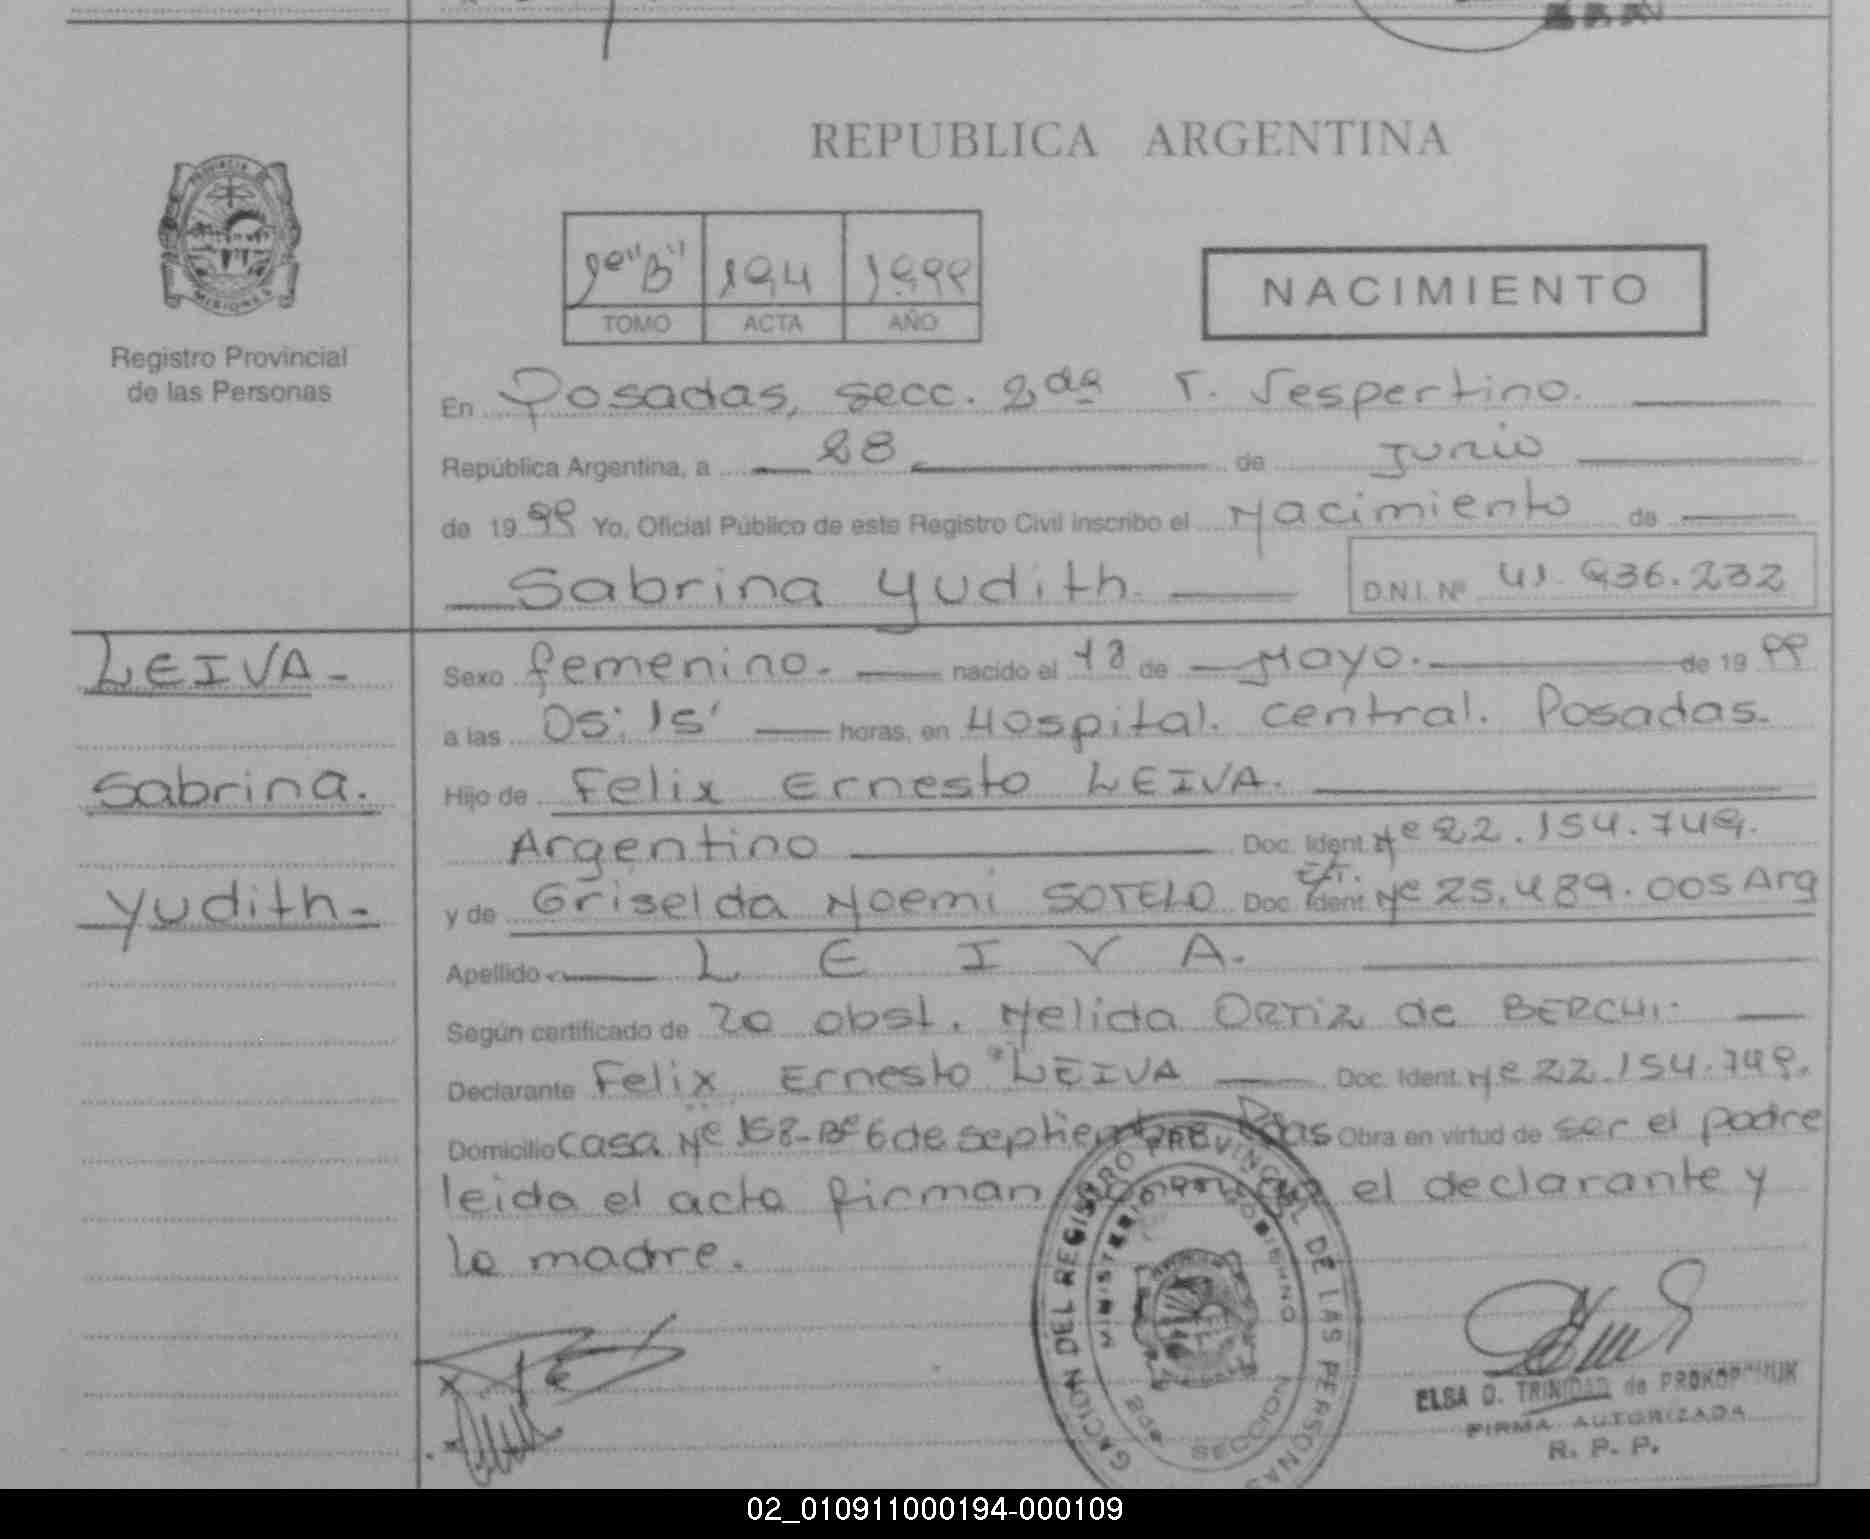 REPUBLICA ARGENTINA
PROVINCIA DE
MISIONES
Registro Provincial
de las Personas
1º "B" 194 1999
TOMO ACTA AÑO
NACIMIENTO
En Posadas, secc. 2da T. Vespertino.
República Argentina, a 28 de Junio
de 1999 Yo, Oficial Público de este Registro Civil inscribo el Nacimiento de
Sabrina Yudith. D.N.I. Nº 41.936.232
LEIVA-
Sabrina.
Yudith-
Sexo femenino. nacido el 18 de Mayo. de 1999
a las 05:15' horas, en Hospital. Central. Posadas.
Hijo de Felix Ernesto LEIVA.
Argentino Doc. Ident. Nº 22.154.749.
y de Griselda Noemi SOTELO Doc. Ident. Nº 25.489.005 Arg
Apellido L E I V A.
Según certificado de 20 obst. Nelida Ortiz de BERCHI.
Declarante Felix Ernesto LEIVA Doc. Ident. Nº 22.154.749.
Domicilio Casa Nº 158-Bº 6 de septiembre Pdas Obra en virtud de ser el padre
leida el acta firman el declarante y
la madre.
DEL REGISTRO PROVINCIAL DE LAS PERSONAS
MINISTERIO DE GOBIERNO
2da SECCION
ELSA O. TRINIDAD de
FIRMA AUTORIZADA
R. P. P.
02_010911000194-000109